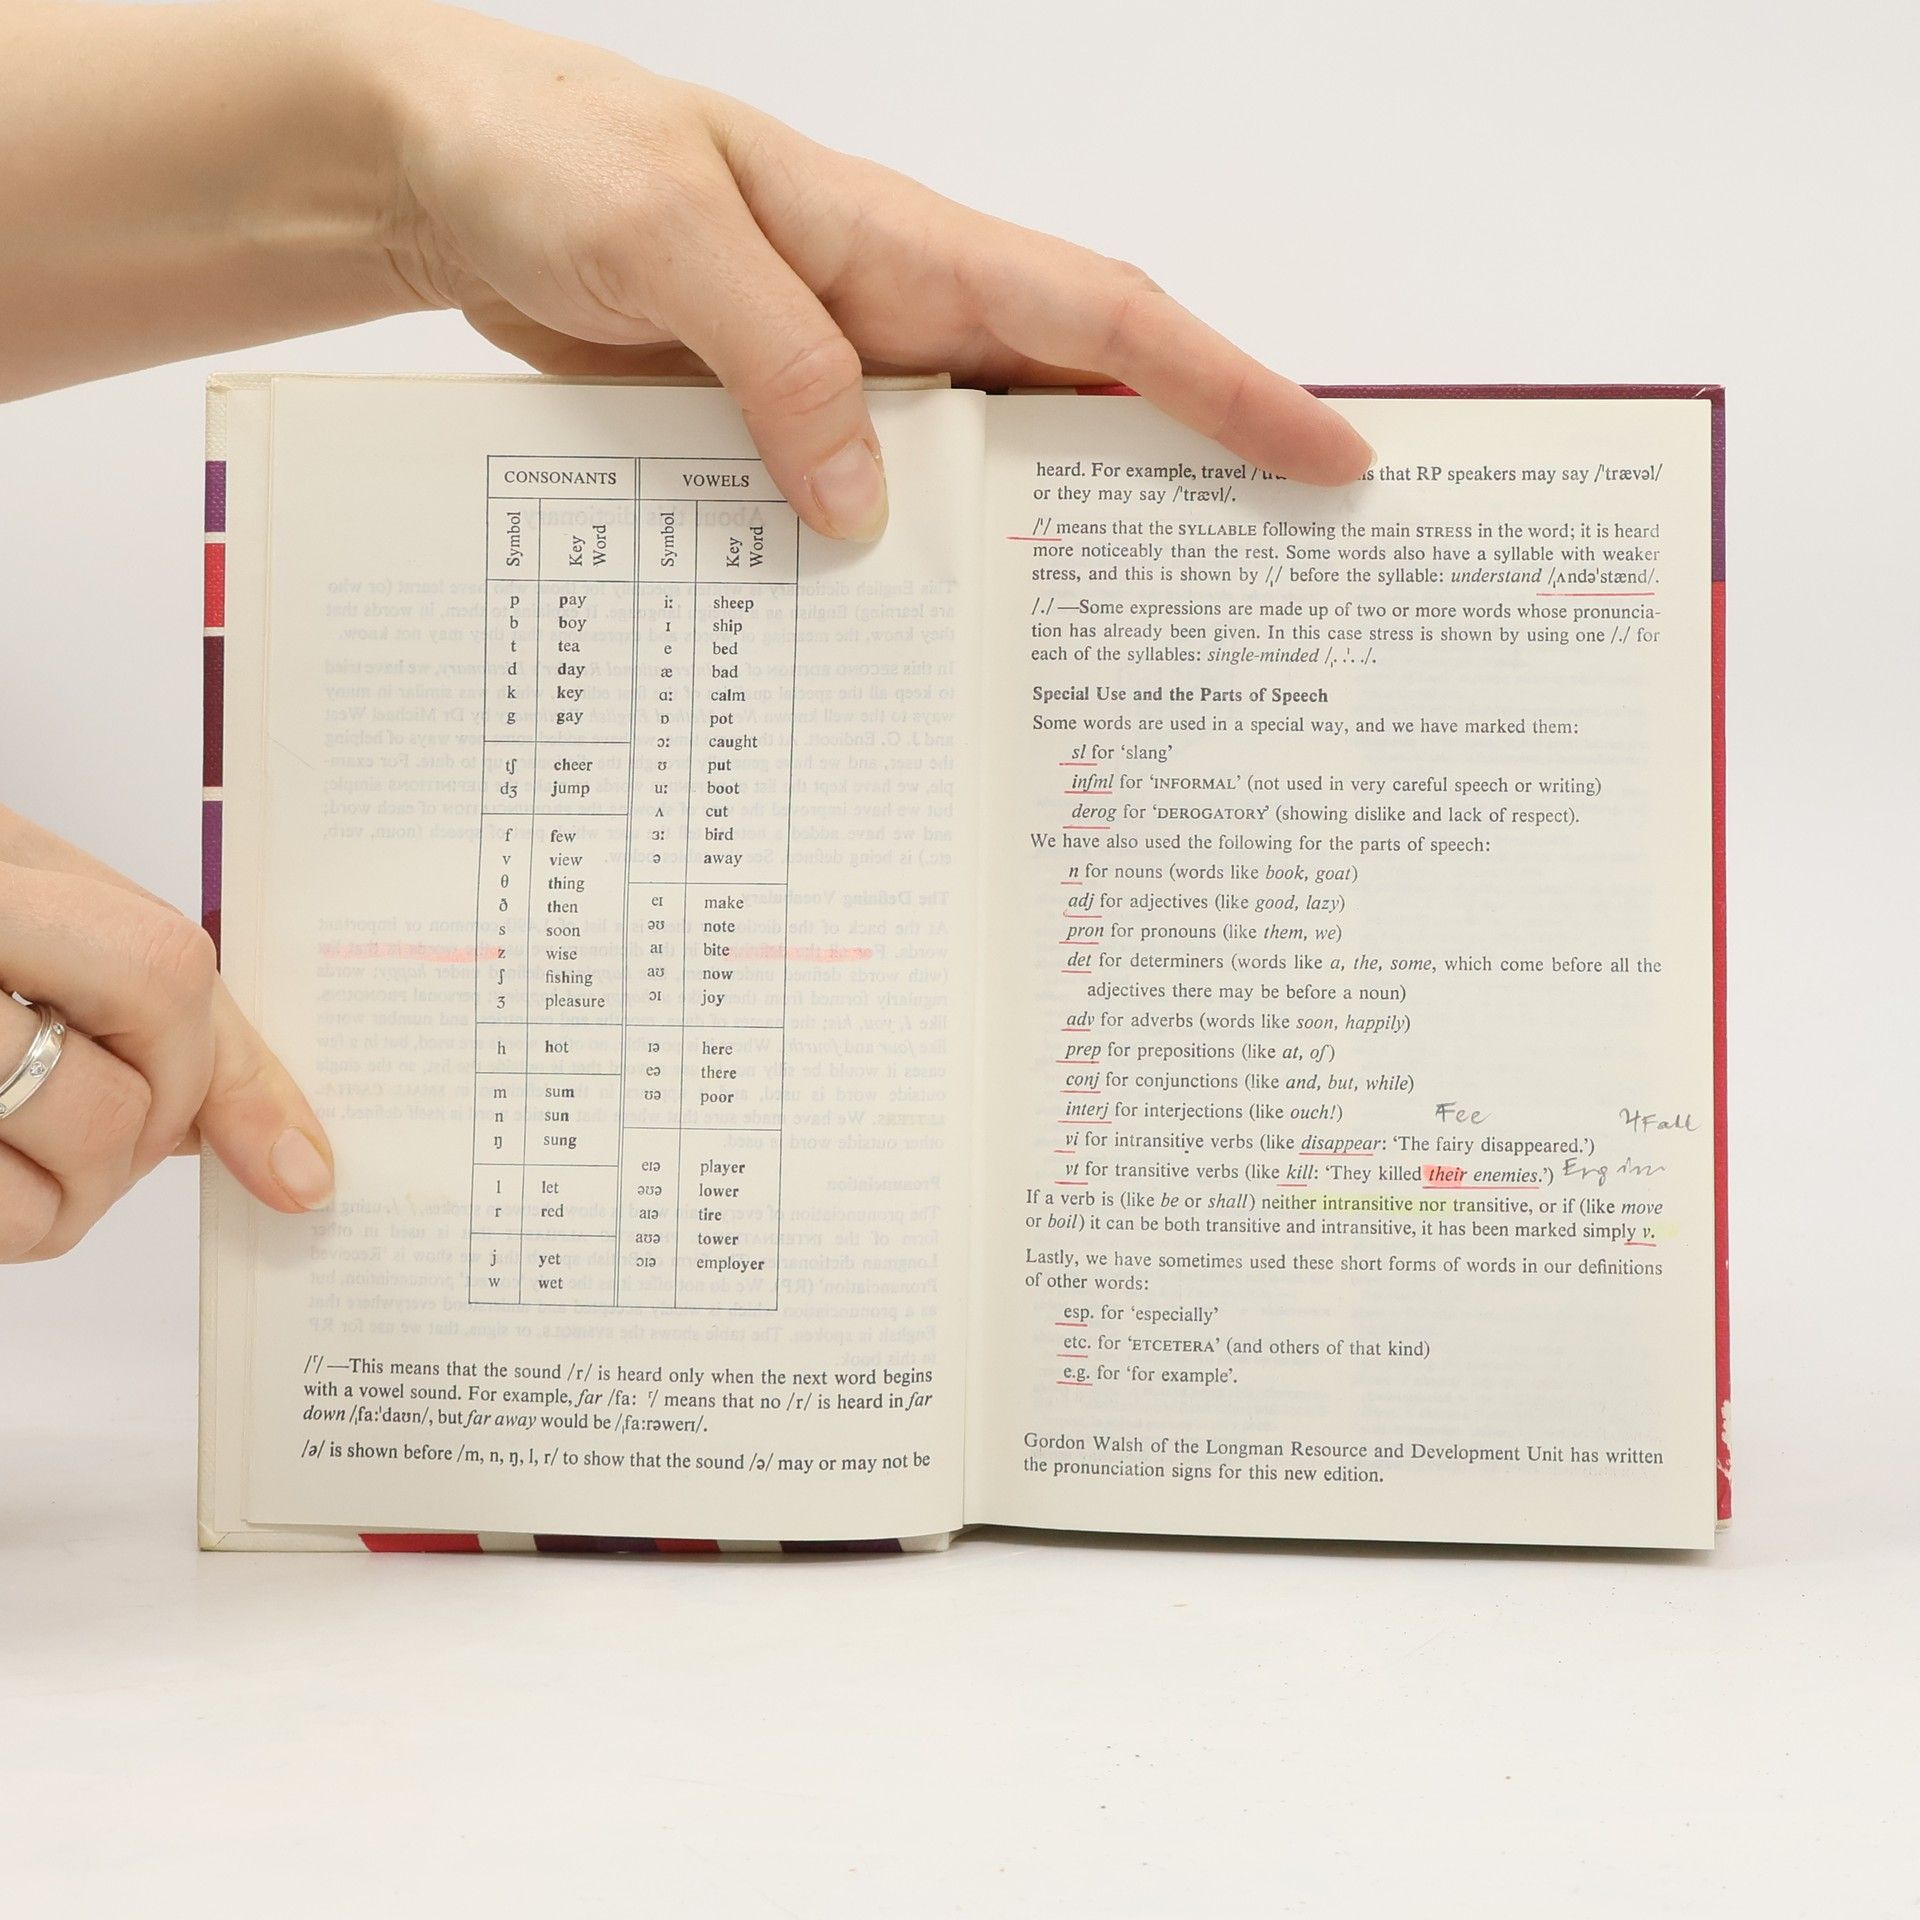 CONSONANTS VOWELS
Symbol Key Word Symbol Key Word
p pay iː sheep
b boy ɪ ship
t tea e bed
d day æ bad
k key ɑː calm
g gay ɒ pot
ɔː caught
tʃ cheer ʊ put
dʒ jump uː boot
ʌ cut
f few ɜː bird
v view ə away
θ thing
ð then eɪ make
s soon əʊ note
z wise aɪ bite
ʃ fishing aʊ now
ʒ pleasure ɔɪ joy
h hot ɪə here
eə there
m sum ʊə poor
n sun
ŋ sung
eɪə player
l let əʊə lower
r red aɪə tire
aʊə tower
j yet ɔɪə employer
w wet
/ʳ/—This means that the sound /r/ is heard only when the next word begins
with a vowel sound. For example, far /faː ʳ/ means that no /r/ is heard in far
down /ˌfaː'daʊn/, but far away would be /ˌfaːrəweɪ/.
/ə/ is shown before /m, n, ŋ, l, r/ to show that the sound /ə/ may or may not be
heard. For example, travel that RP speakers may say /'trævəl/
or they may say /'trævl/.
/'/ means that the SYLLABLE following the main STRESS in the word; it is heard
more noticeably than the rest. Some words also have a syllable with weaker
stress, and this is shown by /ˌ/ before the syllable: understand /ˌʌndə'stænd/.
/./—Some expressions are made up of two or more words whose pronuncia-
tion has already been given. In this case stress is shown by using one /./ for
each of the syllables: single-minded /ˌ. '. ./.
Special Use and the Parts of Speech
Some words are used in a special way, and we have marked them:
sl for ‘slang’
infml for ‘INFORMAL’ (not used in very careful speech or writing)
derog for ‘DEROGATORY’ (showing dislike and lack of respect).
We have also used the following for the parts of speech:
n for nouns (words like book, goat)
adj for adjectives (like good, lazy)
pron for pronouns (like them, we)
det for determiners (words like a, the, some, which come before all the
adjectives there may be before a noun)
adv for adverbs (words like soon, happily)
prep for prepositions (like at, of)
conj for conjunctions (like and, but, while)
interj for interjections (like ouch!) Fee 4Fall
vi for intransitive verbs (like disappear: ‘The fairy disappeared.’)
vt for transitive verbs (like kill: ‘They killed their enemies.’)
If a verb is (like be or shall) neither intransitive nor transitive, or if (like move
or boil) it can be both transitive and intransitive, it has been marked simply v.
Lastly, we have sometimes used these short forms of words in our definitions
of other words:
esp. for ‘especially’
etc. for ‘ETCETERA’ (and others of that kind)
e.g. for ‘for example’.
Gordon Walsh of the Longman Resource and Development Unit has written
the pronunciation signs for this new edition.